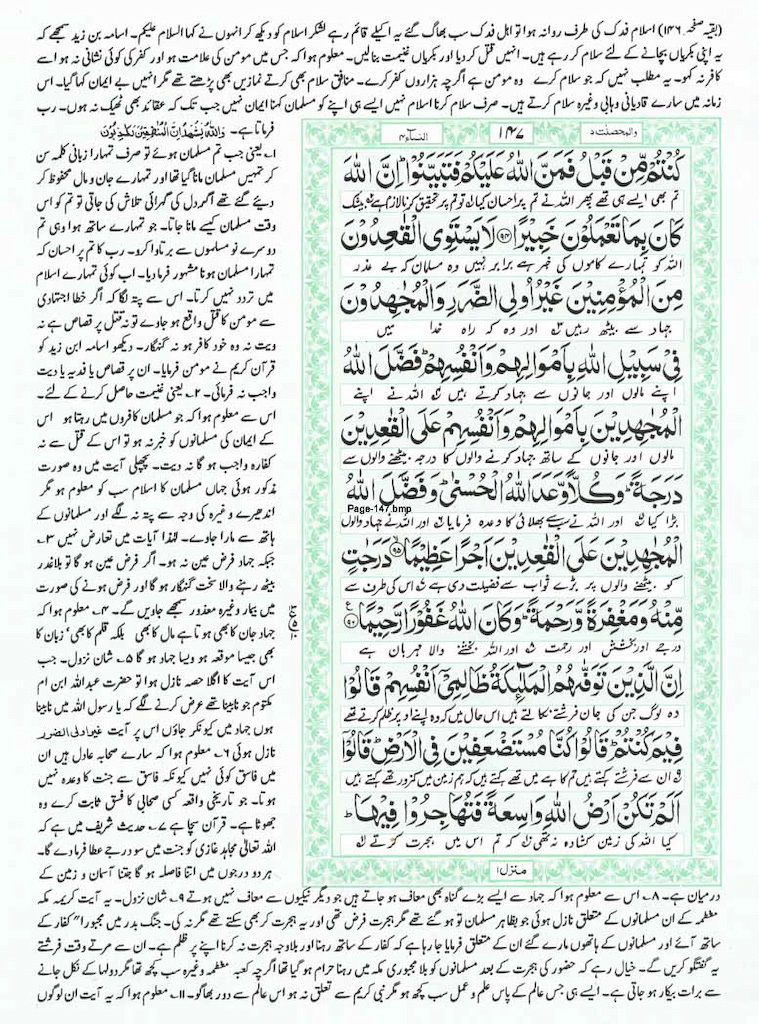 (بقیہ صفحہ ۱۴۶) اسلام فدک کی طرف روانہ ہوا تو اہل فدک سب بھاگ گئے یہ اکیلے قائم رہے لشکر اسلام کو دیکھ کر انہوں نے کہا السلام علیکم۔ اسامہ بن زید سمجھے کہ
یہ اپنی بکریاں بچانے کے لئے سلام کر رہے ہیں۔ انہیں قتل کر دیا اور بکریاں غنیمت بنا لیں۔ معلوم ہوا کہ جس میں مومن کی علامت ہو اور کفر کی کوئی نشانی نہ ہو اسے
کافر نہ کہو۔ یہ مطلب نہیں کہ جو سلام کرے وہ مومن ہے اگرچہ ہزاروں کفر کرے۔ منافق سلام بھی کرتے نمازیں بھی پڑھتے تھے مگر انہیں بے ایمان کہا گیا۔ اس
زمانہ میں سارے قادیانی وہابی وغیرہ سلام کرتے ہیں۔ صرف سلام کرنا اسلام نہیں ایسے ہی اپنے کو مسلمان کہنا ایمان نہیں جب تک کہ عقائد بھی ٹھیک نہ ہوں۔ رب
فرماتا ہے۔ وَاللهُ يَشْهَدُ اِنَّ الْمُنٰفِقِيْنَ لَكٰذِبُوْنَ
۱۔ یعنی جب تم مسلمان ہوئے تو صرف تمہارا زبانی کلمہ سن
کر تمہیں مسلمان مانا گیا تھا اور تمہارے جان و مال محفوظ کر
دیئے گئے تھے اگر دل کی گہرائی تلاش کی جاتی تو تم کو اس
وقت مسلمان کیسے مانا جاتا۔ جو تمہارے ساتھ ہوا وہی تم
دوسرے نو مسلموں سے برتاوا کرو۔ رب کا تم پر احسان کہ
تمہارا مسلمان ہونا مشہور فرما دیا۔ اب کوئی تمہارے اسلام
میں تردد نہیں کرتا۔ اس سے پتہ لگا کہ اگر خطا اجتہادی
سے مومن کا قتل واقع ہو جاوے تو نہ قتل پر قصاص ہے نہ
دیت نہ وہ خود کافر ہو نہ گنہگار۔ دیکھو اسامہ ابن زید کو
قرآن کریم نے مومن فرمایا۔ ان پر قصاص یا فدیہ یا دیت
واجب نہ فرمائی۔ ۲۔ یعنی غنیمت حاصل کرنے کے لئے۔
اس سے معلوم ہوا کہ جو مسلمان کافروں میں رہتا ہو اس
کے ایمان کی مسلمانوں کو خبر نہ ہو تو اس کے قتل سے نہ
کفارہ واجب ہو گا نہ دیت۔ پچھلی آیت میں وہ صورت
مذکور ہوئی جہاں مسلمان کا اسلام سب کو معلوم ہو مگر
اندھیرے وغیرہ کی وجہ سے پتہ نہ لگے اور مسلمانوں کے
ہاتھ سے مارا جاوے۔ لہٰذا آیات میں تعارض نہیں ۳۔
جبکہ جہاد فرض عین نہ ہو۔ اگر فرض عین ہو گا تو بلاعذر
بیٹھ رہنے والا سخت گنہگار ہو گا اور فرض ہونے کی صورت
میں بیمار وغیرہ معذور سمجھے جاویں گے۔ ۴۔ معلوم ہوا کہ
جہاد جان کا بھی ہوتا ہے مال کا بھی بلکہ قلم کا بھی، زبان کا
بھی جیسا موقعہ ہو ویسا جہاد ہو گا ۵۔ شان نزول۔ جب
اس آیت کا اگلا حصہ نازل ہوا تو حضرت عبداللہ ابن ام
مکتوم جو نابینا تھے عرض کرنے لگے کہ یا رسول اللہ میں نابینا
ہوں جہاد میں کیونکر جاؤں اس پر آیت غیر اولی الضرر
نازل ہوئی ۶۔ معلوم ہوا کہ سارے صحابہ عادل ہیں ان
میں فاسق کوئی نہیں کیونکہ فاسق سے جنت کا وعدہ نہیں
ہوتا۔ جو تاریخی واقعہ کسی صحابی کا فسق ثابت کرے وہ
جھوٹا ہے۔ قرآن سچا ہے ۷۔ حدیث شریف میں ہے کہ
اللہ تعالیٰ مجاہد غازی کو جنت میں سو درجے عطا فرما دے گا۔
ہر دو درجوں میں اتنا فاصلہ ہو گا جتنا آسمان و زمین کے
والمحصنت ۵
۱۴۷
النساء ۴
كُنْتُمْ مِّنْ قَبْلُ فَمَنَّ اللهُ عَلَيْكُمْ فَتَبَيَّنُوْا ؕ اِنَّ اللهَ
تم بھی ایسے ہی تھے پھر اللہ نے تم پر احسان کیا تو تم پر تحقیق کرنا لازم ہے بیشک
كَانَ بِمَا تَعْمَلُوْنَ خَبِيْرًا ﴿۹۴﴾ لَا يَسْتَوِى الْقٰعِدُوْنَ
اللہ کو تمہارے کاموں کی خبر ہے برابر نہیں وہ مسلمان کہ بے عذر
مِنَ الْمُؤْمِنِيْنَ غَيْرُ اُولِى الضَّرَرِ وَالْمُجٰهِدُوْنَ
جہاد سے بیٹھ رہیں اور وہ کہ راہ خدا میں
فِىْ سَبِيْلِ اللهِ بِاَمْوَالِهِمْ وَاَنْفُسِهِمْ ؕ فَضَّلَ اللهُ
اپنے مالوں اور جانوں سے جہاد کرتے ہیں اللہ نے اپنے
الْمُجٰهِدِيْنَ بِاَمْوَالِهِمْ وَاَنْفُسِهِمْ عَلَى الْقٰعِدِيْنَ
مالوں اور جانوں کے ساتھ جہاد کرنے والوں کا درجہ بیٹھنے والوں سے
دَرَجَةً ؕ وَكُلًّا وَّعَدَ اللهُ الْحُسْنٰى ؕ وَفَضَّلَ اللهُ
بڑا کیا اور اللہ نے سب سے بھلائی کا وعدہ فرمایا اور اللہ نے جہاد والوں
Page-147.bmp
الْمُجٰهِدِيْنَ عَلَى الْقٰعِدِيْنَ اَجْرًا عَظِيْمًا ﴿۹۵﴾ دَرَجٰتٍ
کو بیٹھنے والوں پر بڑے ثواب سے فضیلت دی ہے اس کی طرف سے
مِّنْهُ وَمَغْفِرَةً وَّرَحْمَةً ؕ وَكَانَ اللهُ غَفُوْرًا رَّحِيْمًا ﴿۹۶﴾
درجے اور بخشش اور رحمت اور اللہ بخشنے والا مہربان ہے
اِنَّ الَّذِيْنَ تَوَفّٰىهُمُ الْمَلٰٓئِكَةُ ظَالِمِىْٓ اَنْفُسِهِمْ قَالُوْا
وہ لوگ جن کی جان فرشتے نکالتے ہیں اس حال میں کہ وہ اپنے اوپر ظلم کرتے تھے
فِيْمَ كُنْتُمْ ؕ قَالُوْا كُنَّا مُسْتَضْعَفِيْنَ فِى الْاَرْضِ ؕ قَالُوْٓا
ان سے فرشتے کہتے ہیں تم کاہے میں تھے کہتے ہیں کہ ہم زمین میں کمزور تھے کہتے ہیں
اَلَمْ تَكُنْ اَرْضُ اللهِ وَاسِعَةً فَتُهَاجِرُوْا فِيْهَا ؕ
کیا اللہ کی زمین کشادہ نہ تھی کہ تم اس میں ہجرت کرتے
منزل ۱
درمیان ہے۔ ۸۔ اس سے معلوم ہوا کہ جہاد سے ایسے بڑے گناہ بھی معاف ہو جاتے ہیں جو دیگر نیکیوں سے معاف نہیں ہوتے ۹۔ شان نزول۔ یہ آیت کریمہ مکہ
معظمہ کے ان مسلمانوں کے متعلق نازل ہوئی جو بظاہر مسلمان تو ہو گئے تھے مگر ہجرت فرض تھی اور یہ ہجرت کر بھی سکتے تھے مگر نہ کی۔ جنگ بدر میں مجبوراً کفار کے
ساتھ آئے اور مسلمانوں کے ہاتھوں مارے گئے ان کے متعلق فرمایا جا رہا ہے کہ کفار کے ساتھ رہنا اور بلاوجہ ہجرت نہ کرنا اپنے پر ظلم ہے۔ ان سے مرتے وقت فرشتے
یہ گفتگو کریں گے۔ خیال رہے کہ حضور کی ہجرت کے بعد مسلمانوں کو بلا مجبوری مکہ میں رہنا حرام ہو گیا تھا اگرچہ کعبہ معظمہ وغیرہ سب کچھ تھا مگر دولہا کے نکل جانے
سے برات بیکار ہو جاتی ہے۔ ایسے ہی جس عالم کے پاس علم و عمل سب کچھ ہو مگر نبی کریم سے تعلق نہ ہو اس عالم سے دور بھاگو۔ ۱۱۔ معلوم ہوا کہ یہ آیت ان لوگوں